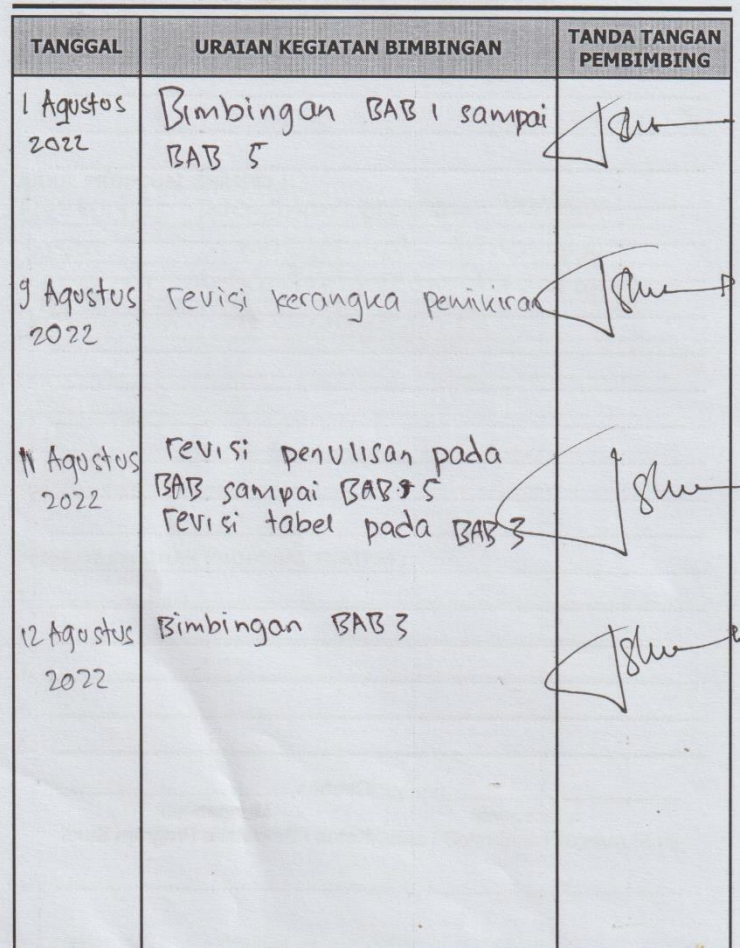 TANGGAL
URAIAN KEGIATAN BIMBINGAN
TANDA TANGAN
PEMBIMBING
1 Agustus
2022
Bimbingan BAB 1 sampai
BAB 5
9 Agustus
2022
revisi kerangka pemikiran
11 Agustus
2022
revisi penulisan pada
BAB sampai BAB 5
revisi tabel pada BAB 3
12 Agustus
2022
Bimbingan BAB 3